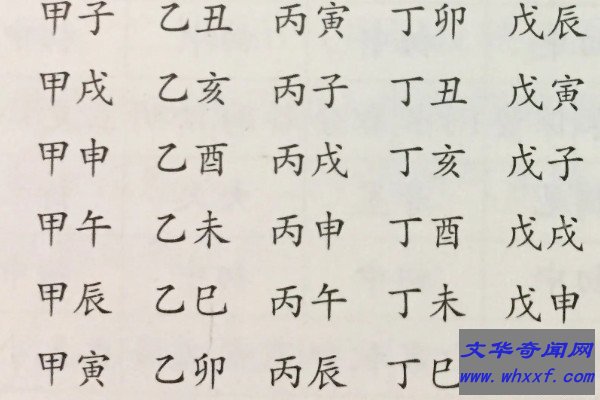 甲子 乙丑 丙寅 丁卯 戊辰
甲戌 乙亥 丙子 丁丑 戊寅
甲申 乙酉 丙戌 丁亥 戊子
甲午 乙未 丙申 丁酉 戊戌
甲辰 乙巳 丙午 丁未 戊申
甲寅 乙卯 丙辰 丁巳
文华奇闻网
www.whxxf.com